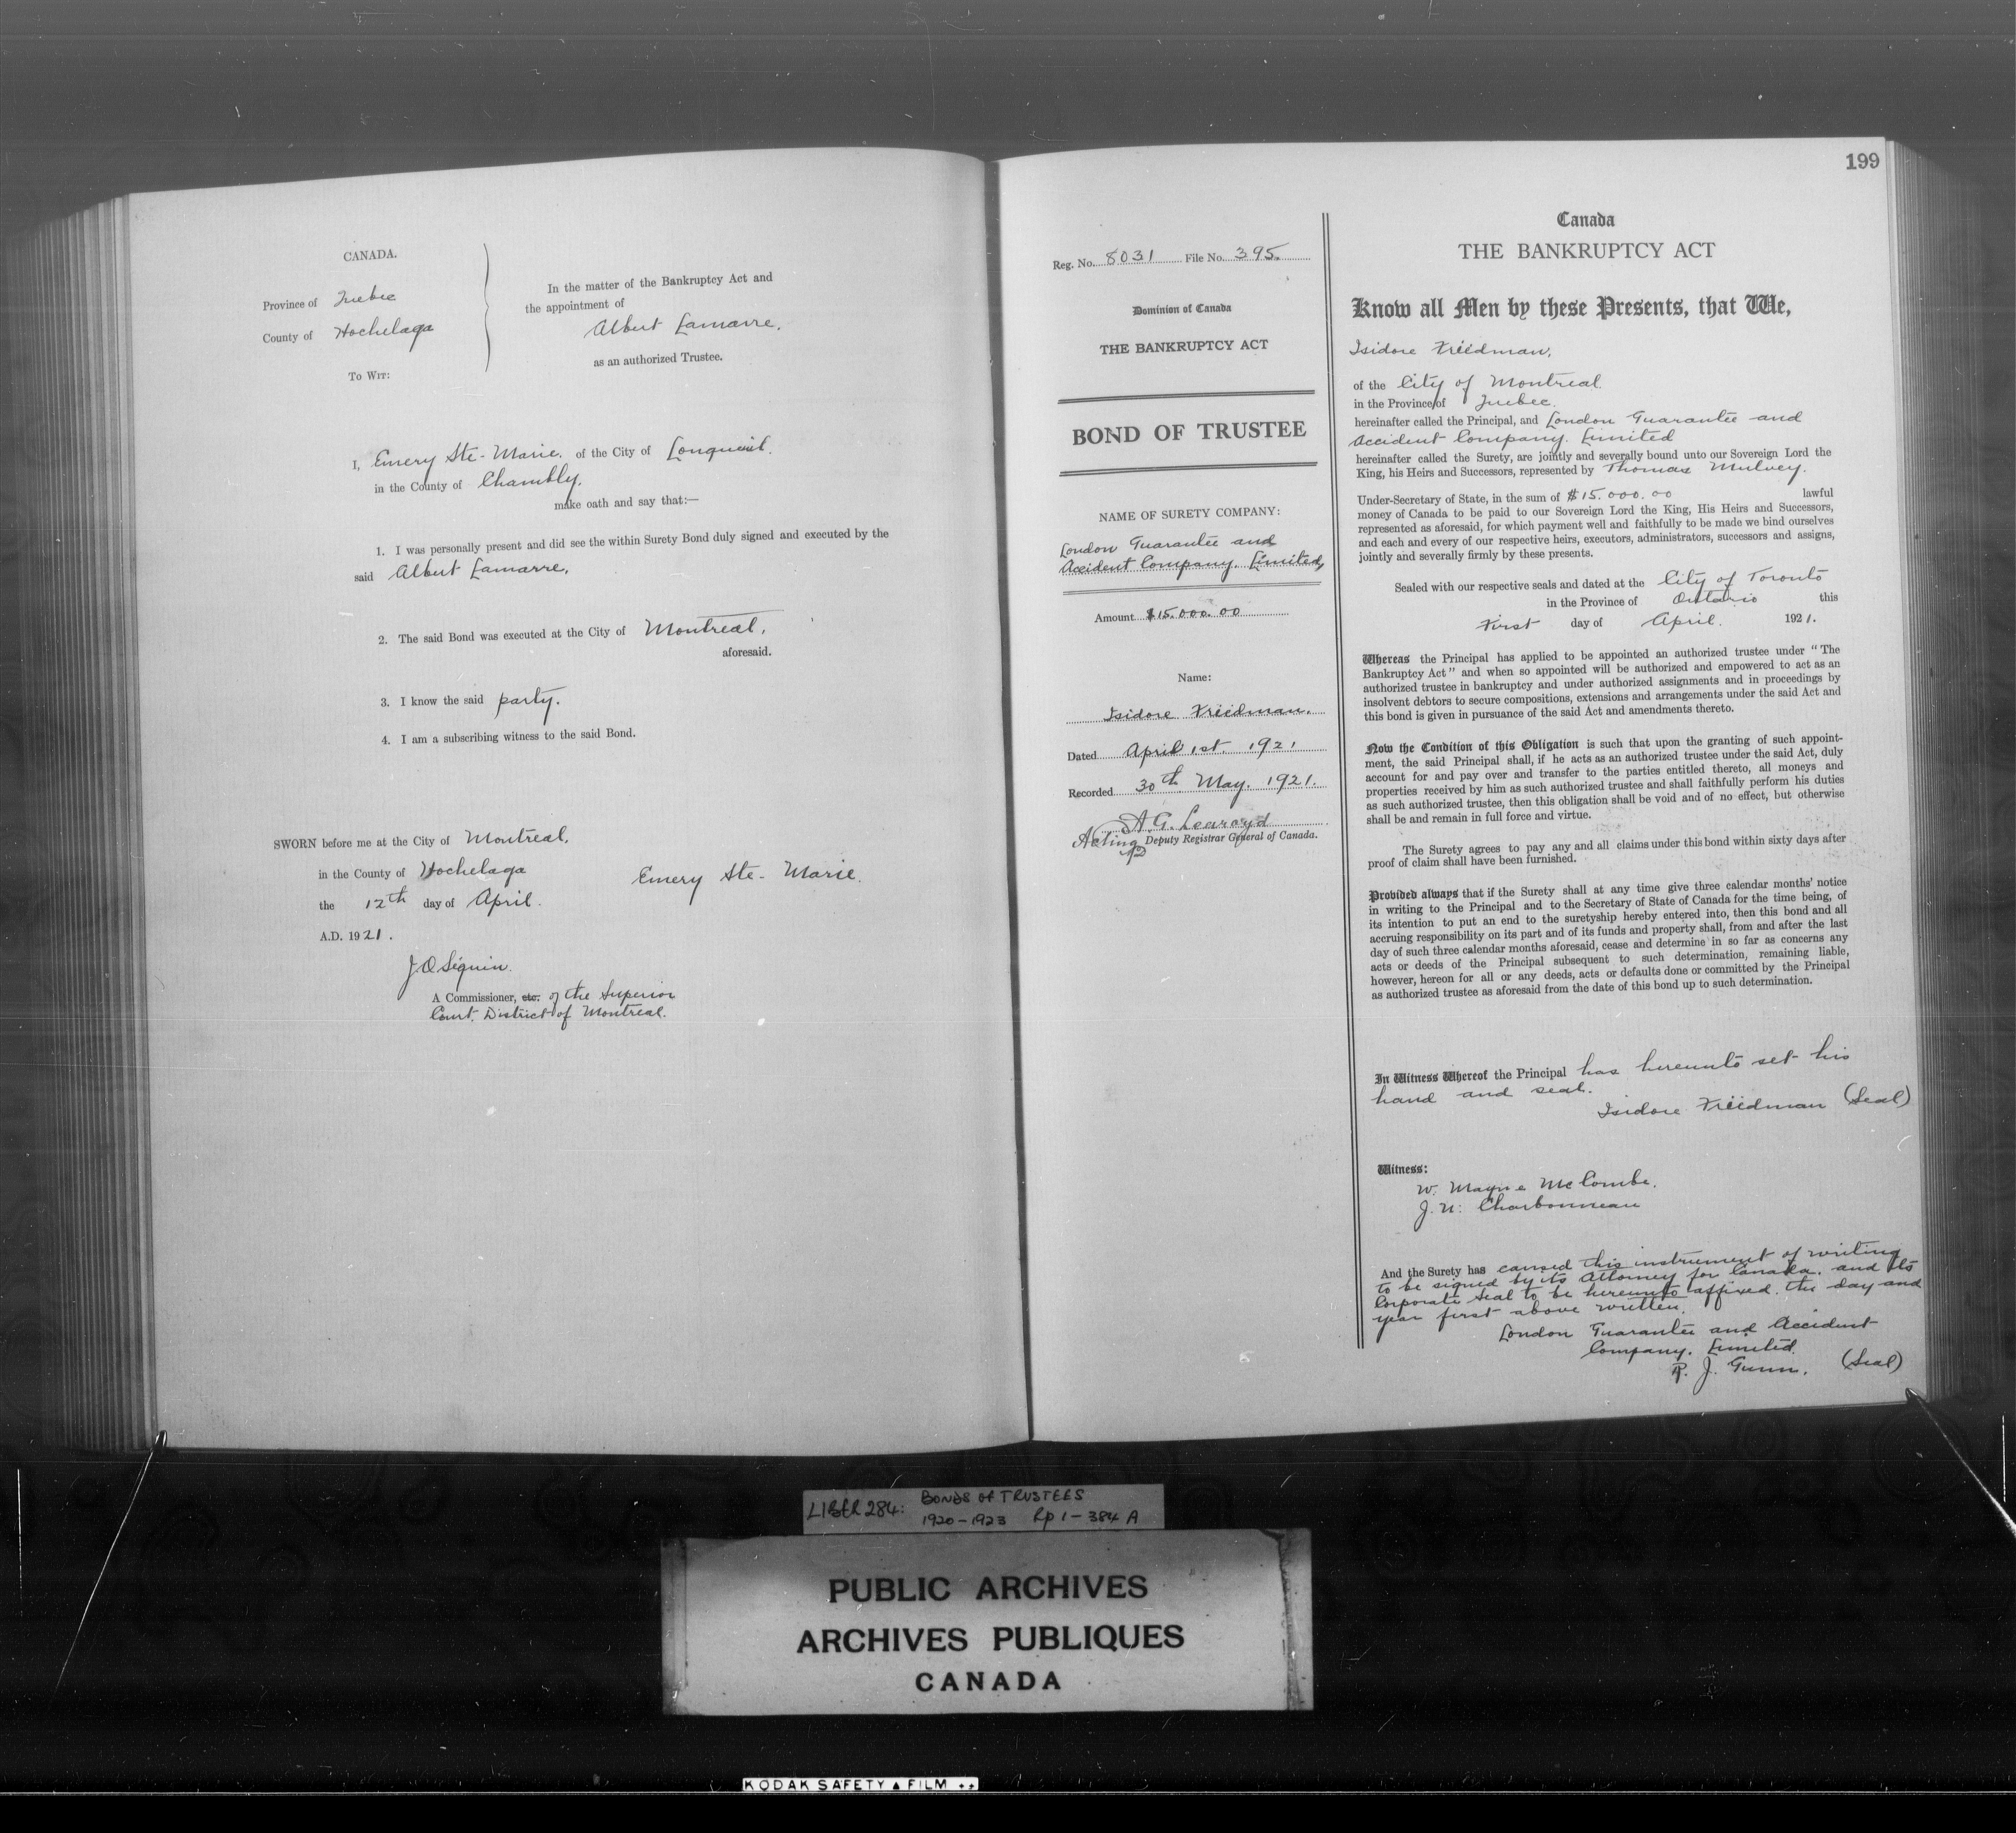 CANADA.
Province of Quebec
County of Hochelaga
To Wit:
In the matter of the Bankruptcy Act and
the appointment of
Albert Lamarre,
as an authorized Trustee.
I, Emery Ste-Marie. of the City of Longueuil.
in the County of Chambly.
make oath and say that:—
1. I was personally present and did see the within Surety Bond duly signed and executed by the
said Albert Lamarre,
2. The said Bond was executed at the City of Montreal,
aforesaid.
3. I know the said party.
4. I am a subscribing witness to the said Bond.
SWORN before me at the City of Montreal,
in the County of Hochelaga
the 12th day of April.
A.D. 1921.
Emery Ste-Marie.
J.O. Séguin.
A Commissioner, etc. of the Superior
Court, District of Montreal.
199
Reg. No. 8031 File No. 395.
Dominion of Canada
THE BANKRUPTCY ACT
BOND OF TRUSTEE
NAME OF SURETY COMPANY:
London Guarantee and
Accident Company. Limited,
Amount $15.000.00
Name:
Isidore Friedman.
Dated April 1st. 1921
Recorded 30th May. 1921.
A.G. Learoyd
Acting Deputy Registrar General of Canada.
Canada
THE BANKRUPTCY ACT
Know all Men by these Presents, that We,
Isidore Friedman,
of the City of Montreal
in the Province of Quebec.
hereinafter called the Principal, and London Guarantee and
Accident Company. Limited
hereinafter called the Surety, are jointly and severally bound unto our Sovereign Lord the
King, his Heirs and Successors, represented by Thomas Mulvey.
Under-Secretary of State, in the sum of $15.000.00 lawful
money of Canada to be paid to our Sovereign Lord the King, His Heirs and Successors,
represented as aforesaid, for which payment well and faithfully to be made we bind ourselves
and each and every of our respective heirs, executors, administrators, successors and assigns,
jointly and severally firmly by these presents.
Sealed with our respective seals and dated at the City of Toronto
in the Province of Ontario this
First day of April. 1921.
Whereas the Principal has applied to be appointed an authorized trustee under "The
Bankruptcy Act" and when so appointed will be authorized and empowered to act as an
authorized trustee in bankruptcy and under authorized assignments and in proceedings by
insolvent debtors to secure compositions, extensions and arrangements under the said Act and
this bond is given in pursuance of the said Act and amendments thereto.
Now the Condition of this Obligation is such that upon the granting of such appoint-
ment, the said Principal shall, if he acts as an authorized trustee under the said Act, duly
account for and pay over and transfer to the parties entitled thereto, all moneys and
properties received by him as such authorized trustee and shall faithfully perform his duties
as such authorized trustee, then this obligation shall be void and of no effect, but otherwise
shall be and remain in full force and virtue.
The Surety agrees to pay any and all claims under this bond within sixty days after
proof of claim shall have been furnished.
Provided always that if the Surety shall at any time give three calendar months' notice
in writing to the Principal and to the Secretary of State of Canada for the time being, of
its intention to put an end to the suretyship hereby entered into, then this bond and all
accruing responsibility on its part and of its funds and property shall, from and after the last
day of such three calendar months aforesaid, cease and determine in so far as concerns any
acts or deeds of the Principal subsequent to such determination, remaining liable,
however, hereon for all or any deeds, acts or defaults done or committed by the Principal
as authorized trustee as aforesaid from the date of this bond up to such determination.
In Witness Whereof the Principal has hereunto set his
hand and seal.
Isidore Friedman (Seal)
Witness:
W. Mayne McCombe.
J.U. Charbonneau
And the Surety has caused this instrument of writing
to be signed by its Attorney for Canada. and its
Corporate Seal to be hereunto affixed. the day and
year first above written.
London Guarantee and Accident
Company. Limited.
R. J. Gunn. (Seal)
LIBER 284: BONDS OF TRUSTEES
1920-1923 Pp 1-384 A
PUBLIC ARCHIVES
ARCHIVES PUBLIQUES
CANADA
KODAK SAFETY FILM